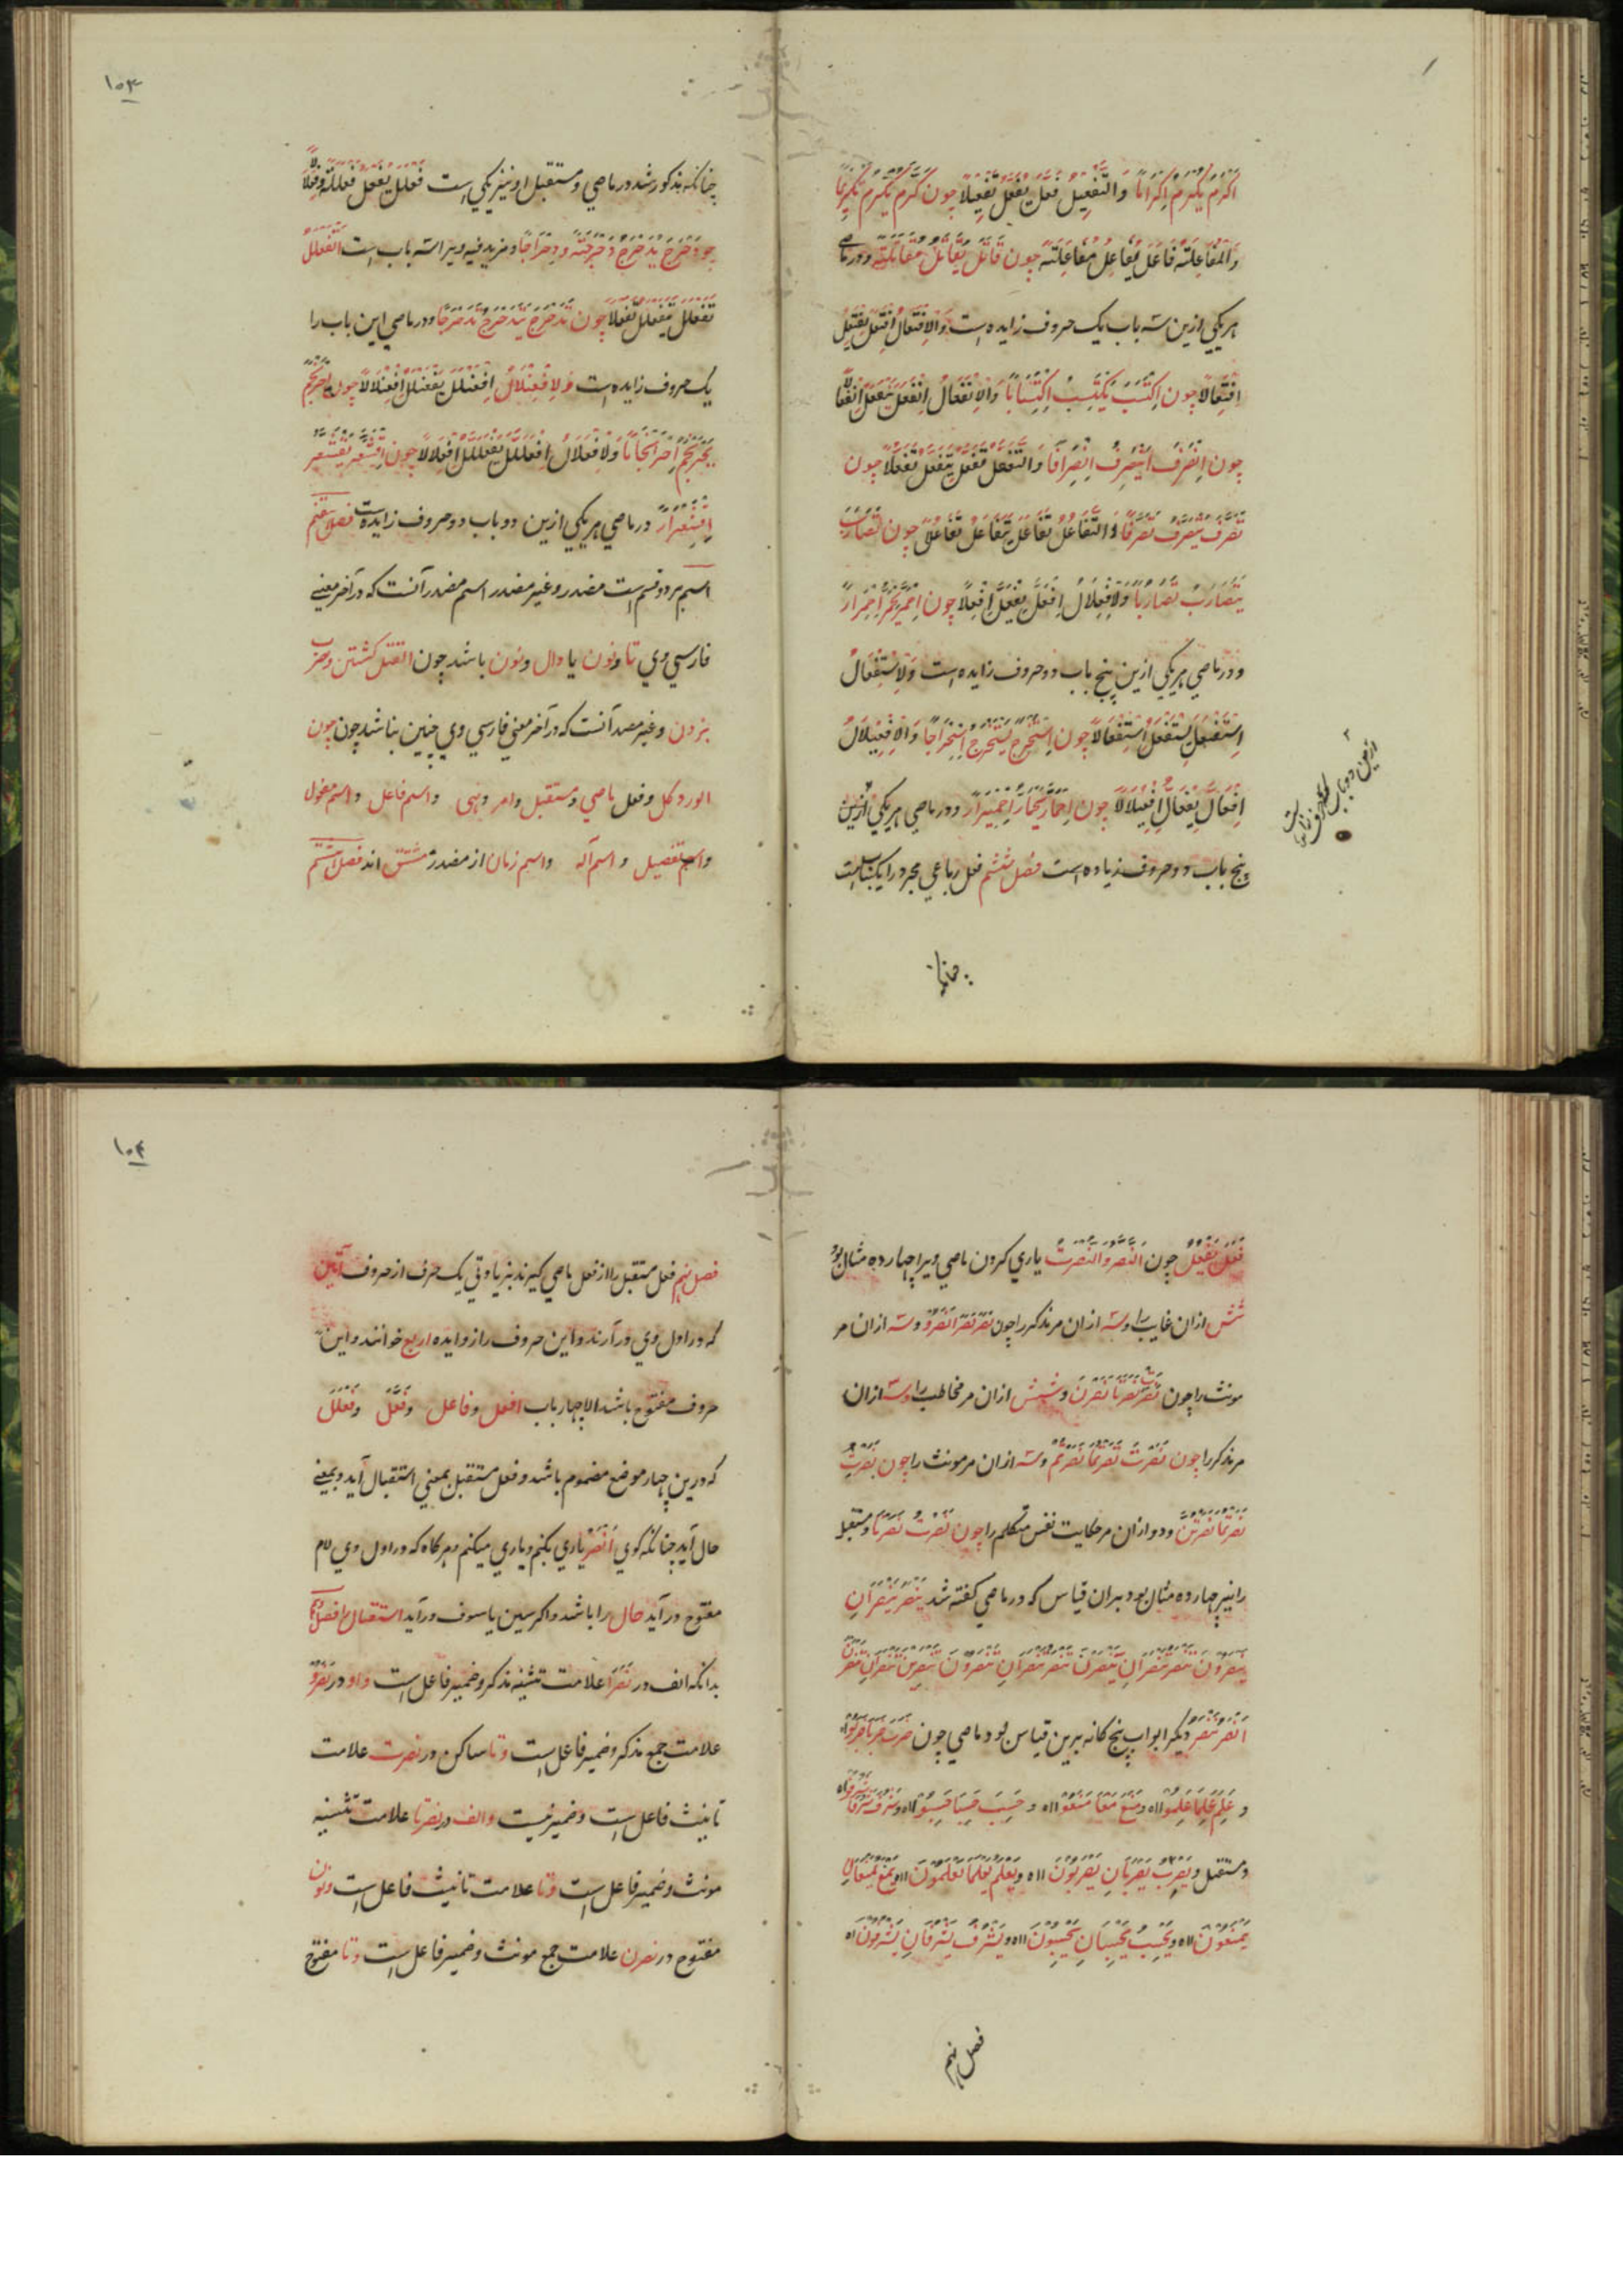 اَکرَمَ یُکرِمُ اِکرَاماً وَالتَّفعِیلُ فَعَّلَ یُفَعِّلُ تَفعِیلاً چون کَرَّمَ یُکَرِّمُ تَکرِیماً
وَالمُفَاعِلَتُه فَاعَلَ یُفَاعِلُ مُفَاعِلَتَه چون قَاتَلَ یُقَاتِلُ مُقَاتَلَتَه ودر ماضی
هر یکی ازین سه باب یک حروف زایده است وَالاِفتِعَالُ اِفتَعَلَ یَفتَعِلُ
اِفتِعَالاً چون اِکتَسَبَ یَکتَسِبُ اِکتِسَاباً وَالاِنفِعَالُ اِنفَعَلَ یَنفَعِلُ اِنفِعَالاً
چون اِنصَرَفَ یَنصَرِفُ اِنصِرَافاً وَالتَّفَعُّلُ تَفَعَّلَ یَتَفَعَّلُ تَفَعُّلاً چون
تَصَرَّفَ یَتَصَرَّفُ تَصَرُّفاً وَالتَّفَاعُلُ تَفَاعَلَ یَتَفَاعَلُ تَفَاعُلاً چون تَضَارَبَ
یَتَضَارَبُ تَضَارُباً وَلاِفعِلَالُ اِفعَلَّ یَفعَلُّ اِفعِلَالاً چون اِحمَرَّ یَحمَرُّ اِحمِرَاراً
ودر ماضی هر یکی ازین پنج باب دو حروف زایده است وَلاِستِفعَالُ
اِستَفعَلَ یَستَفعِلُ اِستِفعَالاً چون اِستَخرَجَ یَستَخرِجُ اِستِخرَاجاً وَالاِفعِیلَالُ
اِفعَالَّ یَفعَالُّ اِفعِیلَالاً چون اِحمَارَّ یَحمَارُّ اِحمِیرَاراً ودر ماضی هر یکی ازین
پنج باب دو حروف زیاده است فصل ششم فعل رباعی مجرد را یکبابست
ازین دو باب
چنانکه
۱۰۳
چنانکه مذکور شد در ماضی و مستقبل او نیز یکی است فَعلَلَ یُفَعلِلُ فَعلَلَةً وفِعلَالاً
چو دَحرَجَ یُدَحرِجُ دَحرَجَتَه ودِحرَاجاً ومزید فیه ویرا سه باب است اَلتَّفَعلُلُ
تَفَعلَلَ یَتَفَعلَلُ تَفَعلُلاً چون تَدَحرَجَ یَتَدَحرَجُ تَدَحرُجاً ودر ماضی این باب را
یک حروف زایده است وَلاِفعِنلَالُ اِفعَنلَلَ یَفعَنلِلُ اِفعِنلَالاً چون اِحرَنجَمَ
یَحرَنجِمُ اِحرِنجَاماً وَلاِفعِلَّالُ اِفعَلَلَّ یَفعَلِلُّ اِفعِلَّالاً چون اِقشَعَرَّ یَقشَعِرُّ
اِقشِعرَاراً در ماضی هر یکی ازین دو باب دو حروف زایده است فصل هفتم
اسم بر دو قسم است مصدر و غیر مصدر اسم مصدر آنست که در آخر معنی
فارسی وی تا ونون یا دال ونون باشد چون القتل کشتن وضرب
بزدن وغیر مصدر آنست که در آخر معنی فارسی وی چنین نباشد چون چون
الورد کل وفعل ماضی ومستقبل وامر ونهی واسم فاعل واسم مفعول
واسم تفضیل واسم آله واسم زمان از مصدر مشتق اند فصل هشتم
فَعَلَ یَفعُلُ چون النَّصرُ والنُّصرَت یاری کردن ماضی ویرا چهارده مثال بود
شش ازان غایب را وسه ازان مر مذکر را چون نَصَرَ نَصَرَا نَصَرُوا وسه ازان مر
مونث را چون نَصَرَت نَصَرَتَا نَصَرنَ وشش ازان مر مخاطب را وسه ازان
مر مذکر را چون نَصَرتَ نَصَرتُمَا نَصَرتُم وسه ازان مر مونث را چون نَصَرتِ
نَصَرتُمَا نَصَرتُنَّ ودو ازان مر حکایت نفس متکلم را چون نَصَرتُ نَصَرنَا ومستقبل
را نیز چهارده مثال بود بران قیاس که در ماضی کفته شد یَنصُرُ یَنصُرَانِ
یَنصُرُونَ تَنصُرُ تَنصُرَانِ یَنصُرنَ تَنصُرُ تَنصُرَانِ تَنصُرُونَ تَنصُرِینَ تَنصُرَانِ تَنصُرنَ
اَنصُرُ نَنصُرُ دیکر ابواب پنج کانه برین قیاس بود ماضی چون ضَرَبَ ضَرَبَا ضَرَبُوا
و عَلِمَ عَلِمَا عَلِمُوا الاه ومَنَعَ مَنَعَا مَنَعُوا الاه وحَسِبَ حَسِبَا حَسِبُوا الاه وشَرُفَ شَرُفَا شَرُفُوا
ومستقبل ویَضرِبُ یَضرِبَانِ یَضرِبُونَ الاه ویَعلَمُ یَعلَمَا یَعلَمُونَ الاه ویَمنَعُ یَمنَعَانِ
یَمنَعُونَ الاه ویَحسِبُ یَحسِبَانِ یَحسِبُونَ الاه ویَشرُفُ یَشرُفَانِ یَشرُفُونَ الاه
فصل نهم
۱۰۴
فصل نهم فعل مستقبل را از فعل ماضی کیرند بزیادتی یک حرف از حروف اَتَین
که در اول وی در آرند واین حروف را زوایده اربع خوانند واین
حروف مفتوح باشد الا چهار باب افعل وفاعل وفَعَّلَ وفَعلَلَ
که درین چهار موضع مضموم باشد وفعل مستقبل بمعنی استقبال آید وبمعنی
حال آید چنانکه کوی اَنصُرُ یاری بکنم ویاری میکنم وهرکاه که در اول وی لام
مفتوح در آید حال را باشد واکر سین یا سوف در آید استقبال را فصل دهم
بدانکه الف در نَصَرَا علامت تثنیه مذکر وضمیر فاعل است واو در نَصَرُوا
علامت جمع مذکر وضمیر فاعل است وتا ساکن در نصرت علامت
تانیث فاعل است وضمیر نیست والف در نصرتا علامت تثنیه
مونث وضمیر فاعل است وتا علامت تانیث فاعل است ونون
مفتوح در نصرن علامت جمع مونث وضمیر فاعل است وتا مفتوح